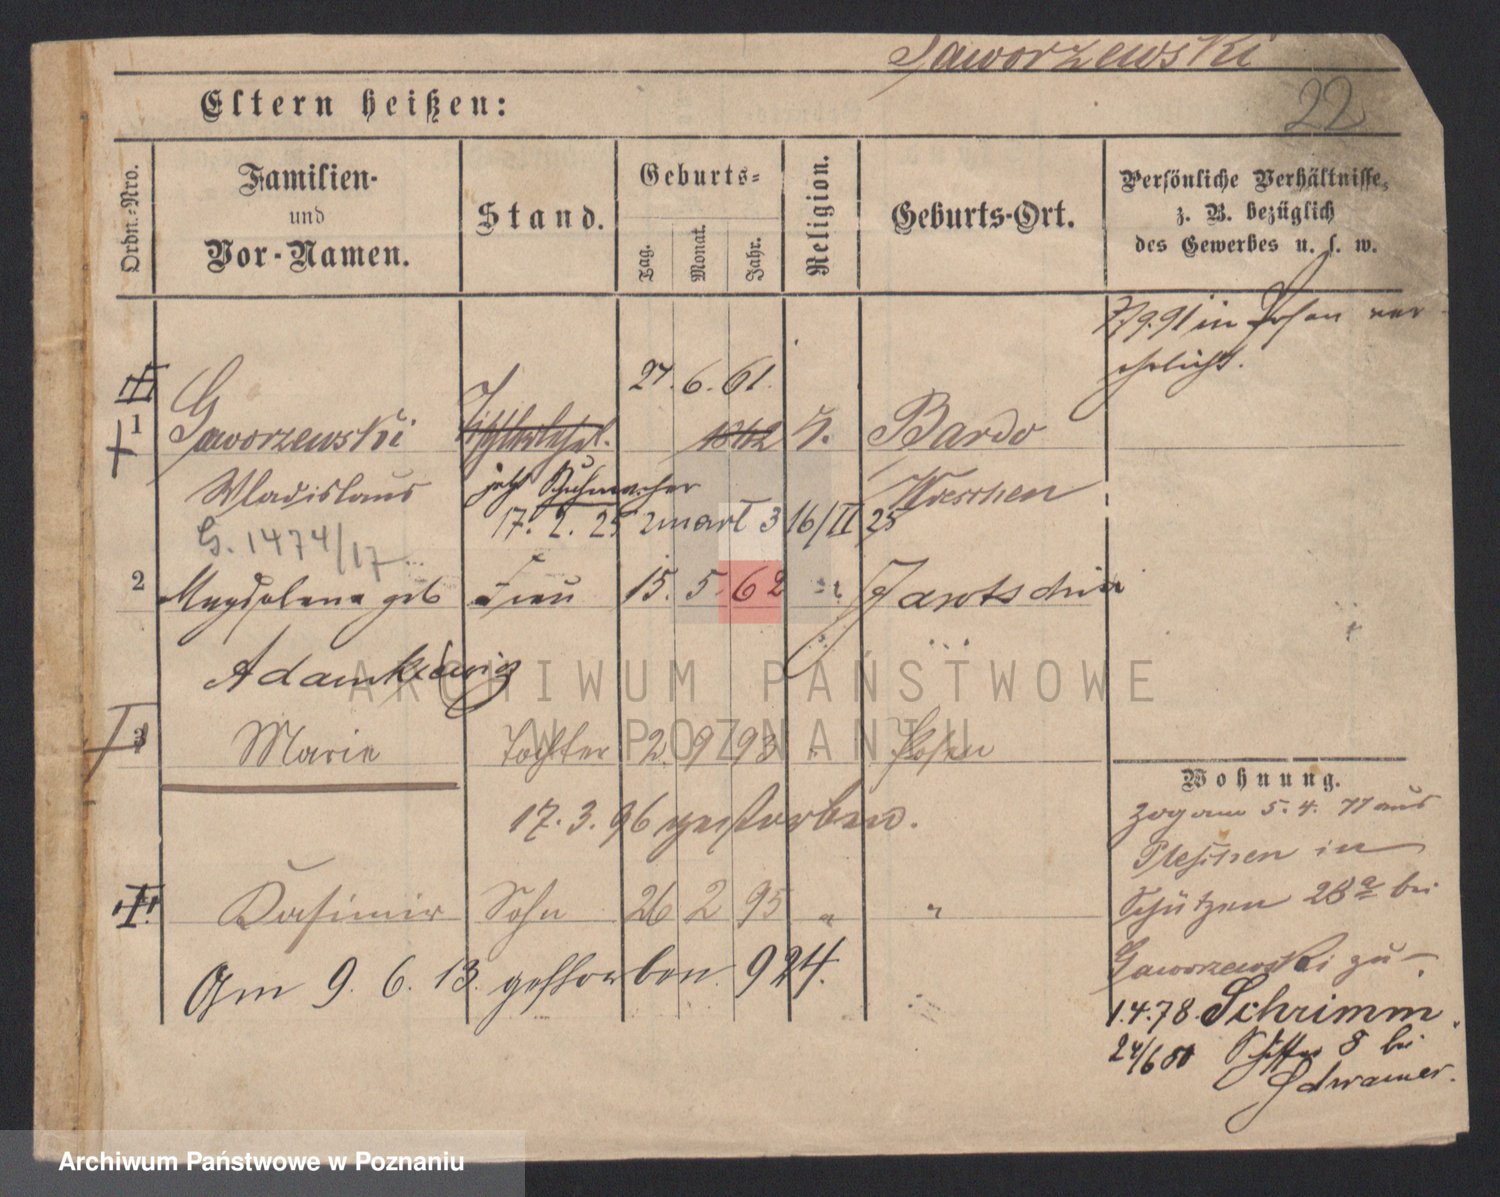 Jaworzewski
22
Eltern heißen:
Ordn.-Nro.
Familien-
und
Vor-Namen.
Stand.
Geburts-
Tag.
Monat.
Jahr.
Religion.
Geburts-Ort.
Persönliche Verhältnisse,
z. B. bezüglich
des Gewerbes u. s. w.
7/9.91 in Posen ver
ehelicht.
27. 6. 61.
1 Gaworzewski 1842 Bardo
Wladislaus jetzt Schuhmacher Wreschen
17. 2. 25 16/II 25
G. 1474/17
2 Magdalena geb Frau 15. 5. 62 Jarotschin
Adamkiewicz
3 Marie Tochter 2 9 93 " Posen
17. 3. 96 gestorben.
Kasimir Sohn 26 2 95 " "
Am 9. 6. 13. gestorben 924.
Wohnung.
Zog am 5. 4. 77 aus
Pleschen in
Schützen 28a bei
Gaworzewski zu
1.4.78 Schrimm
24/6 80 8 bei
ARCHIWUM PAŃSTWOWE
W POZNANIU
Archiwum Państwowe w Poznaniu